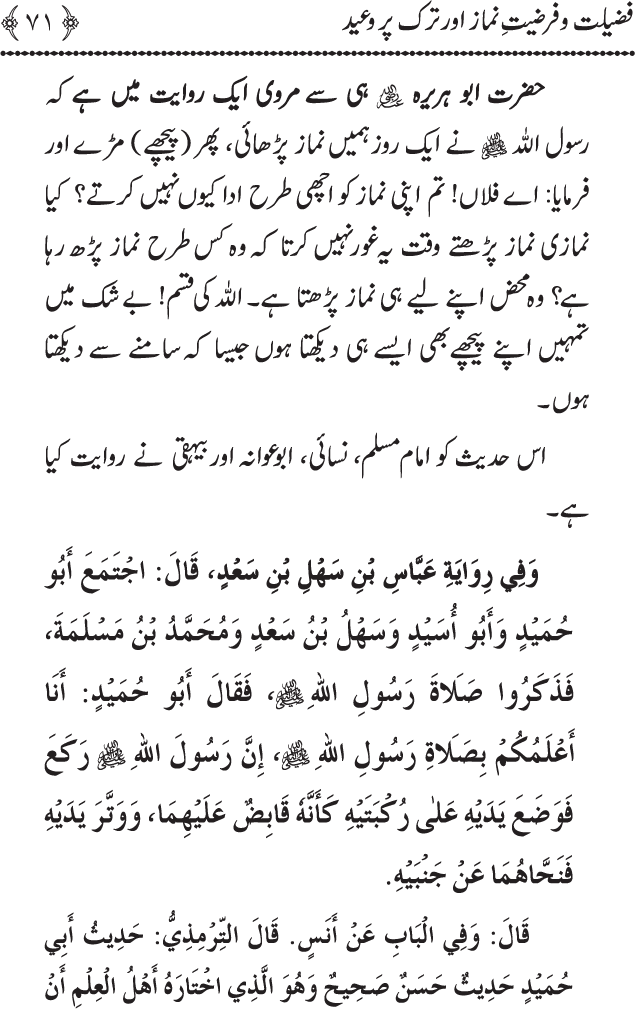 فضیلت و فرضیتِ نماز اور ترک پر وعید ﴿۷۱﴾
حضرت ابو ہریرہ رضی اللہ عنہ ہی سے مروی ایک روایت میں ہے کہ
رسول اللہ ﷺ نے ایک روز ہمیں نماز پڑھائی، پھر (پیچھے) مڑے اور
فرمایا: اے فلاں! تم اپنی نماز کو اچھی طرح ادا کیوں نہیں کرتے؟ کیا
نمازی نماز پڑھتے وقت یہ غور نہیں کرتا کہ وہ کس طرح نماز پڑھ رہا
ہے؟ وہ محض اپنے لیے ہی نماز پڑھتا ہے۔ اللہ کی قسم! بے شک میں
تمہیں اپنے پیچھے بھی ایسے ہی دیکھتا ہوں جیسا کہ سامنے سے دیکھتا
ہوں۔
اس حدیث کو امام مسلم، نسائی، ابو عوانہ اور بیہقی نے روایت کیا
ہے۔
وَفِي رِوَايَةِ عَبَّاسِ بْنِ سَهْلِ بْنِ سَعْدٍ، قَالَ: اجْتَمَعَ أَبُو
حُمَيْدٍ وَأَبُو أُسَيْدٍ وَسَهْلُ بْنُ سَعْدٍ وَمُحَمَّدُ بْنُ مَسْلَمَةَ،
فَذَكَرُوا صَلَاةَ رَسُولِ اللهِ ﷺ، فَقَالَ أَبُو حُمَيْدٍ: أَنَا
أَعْلَمُكُمْ بِصَلَاةِ رَسُولِ اللهِ ﷺ، إِنَّ رَسُولَ اللهِ ﷺ رَكَعَ
فَوَضَعَ يَدَيْهِ عَلٰى رُكْبَتَيْهِ كَأَنَّهٗ قَابِضٌ عَلَيْهِمَا، وَوَتَّرَ يَدَيْهِ
فَنَحَّاهُمَا عَنْ جَنْبَيْهِ.
قَالَ: وَفِي الْبَابِ عَنْ أَنَسٍ. قَالَ التِّرْمِذِيُّ: حَدِيثُ أَبِي
حُمَيْدٍ حَدِيثٌ حَسَنٌ صَحِيحٌ وَهُوَ الَّذِي اخْتَارَهُ أَهْلُ الْعِلْمِ أَنْ